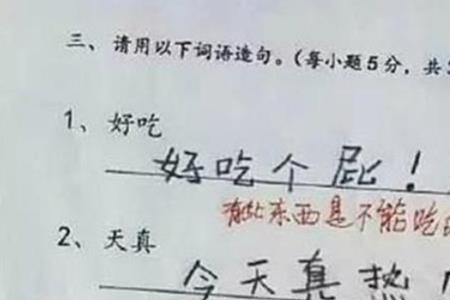 三、请用以下词语造句。（每小题5分，共
1、好吃
好吃个屁！
有些东西是不能吃
2、天真
今天真热